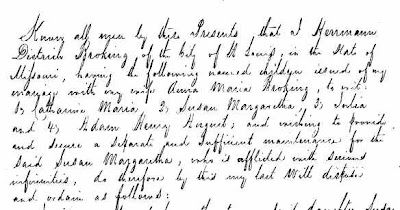 Know all men by these Presents, that I Herrmann
Dietrich Barking of the City of St Louis, in the State of
Missouri, having the following named children issued of my
marriage with my wife Anna Maria Barking, to wit:
1, Catharine Maria 2, Susan Margaretha, 3, Sophia
and 4, Adam Henry August; and wishing to provide
and secure a separate and sufficient maintenance for the
said Susan Margaretha, who is afflicted with serious
infirmities, do therefore by this my last Will dispose
and ordain as follows:
daughter Susan